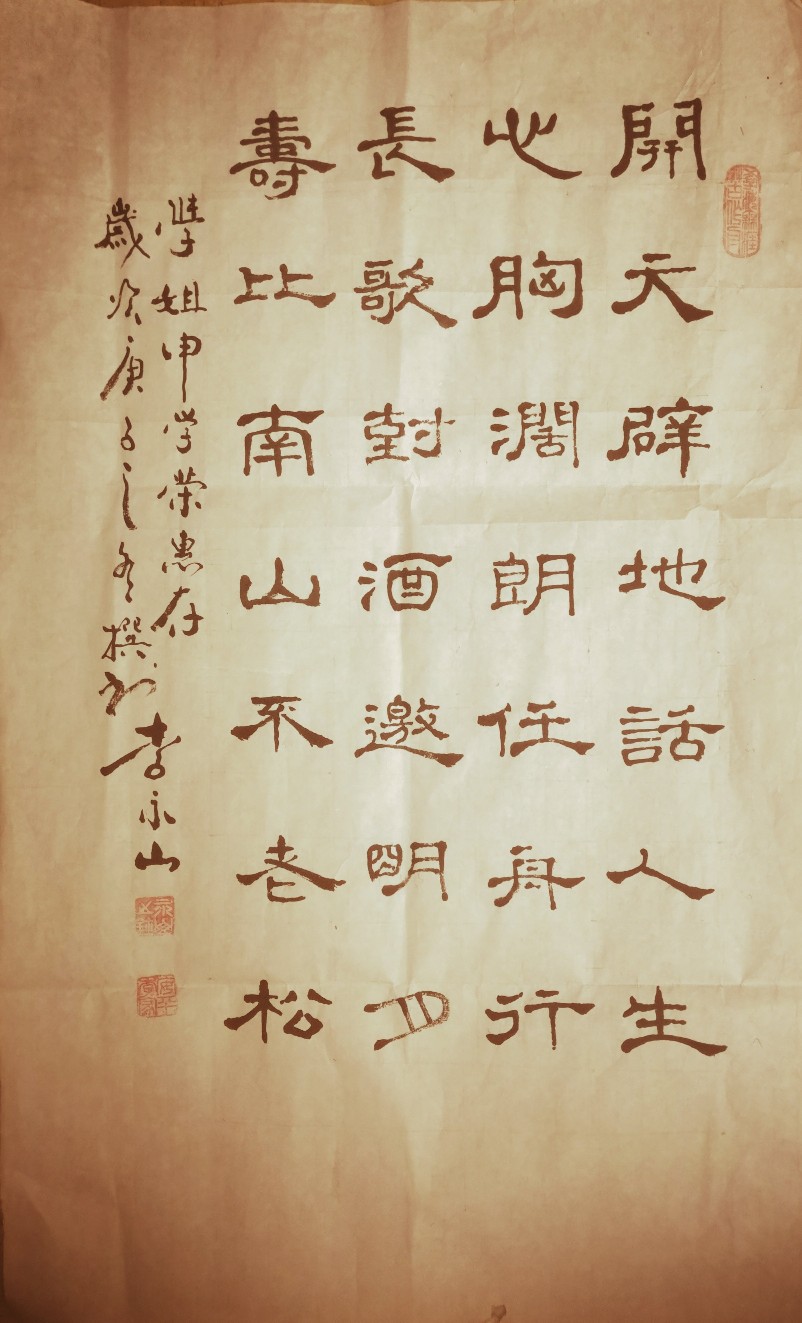 開天辟地話人生
心胸濶朗任舟行
長歌對酒邀明月
壽比南山不老松
學姐申学荣惠存
歲次庚子之冬撰书李永山